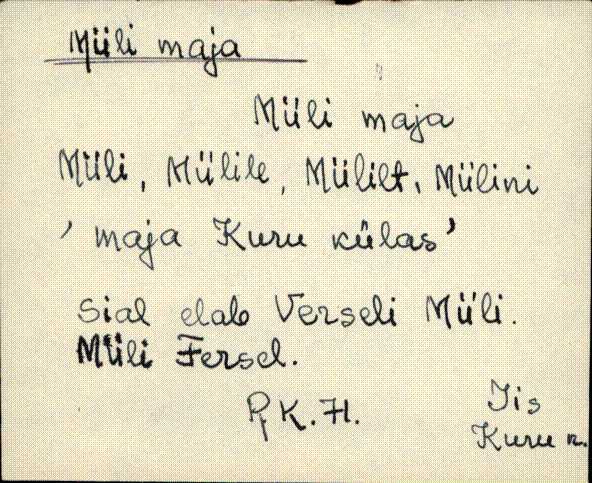 Müli maja
Müli maja
Müli, Mülile, Mülilt, Mülini
' maja Kuru külas'
Sial elab Verseli Müli.
Müli Fersel.
K. H. Iis
Kuru k.